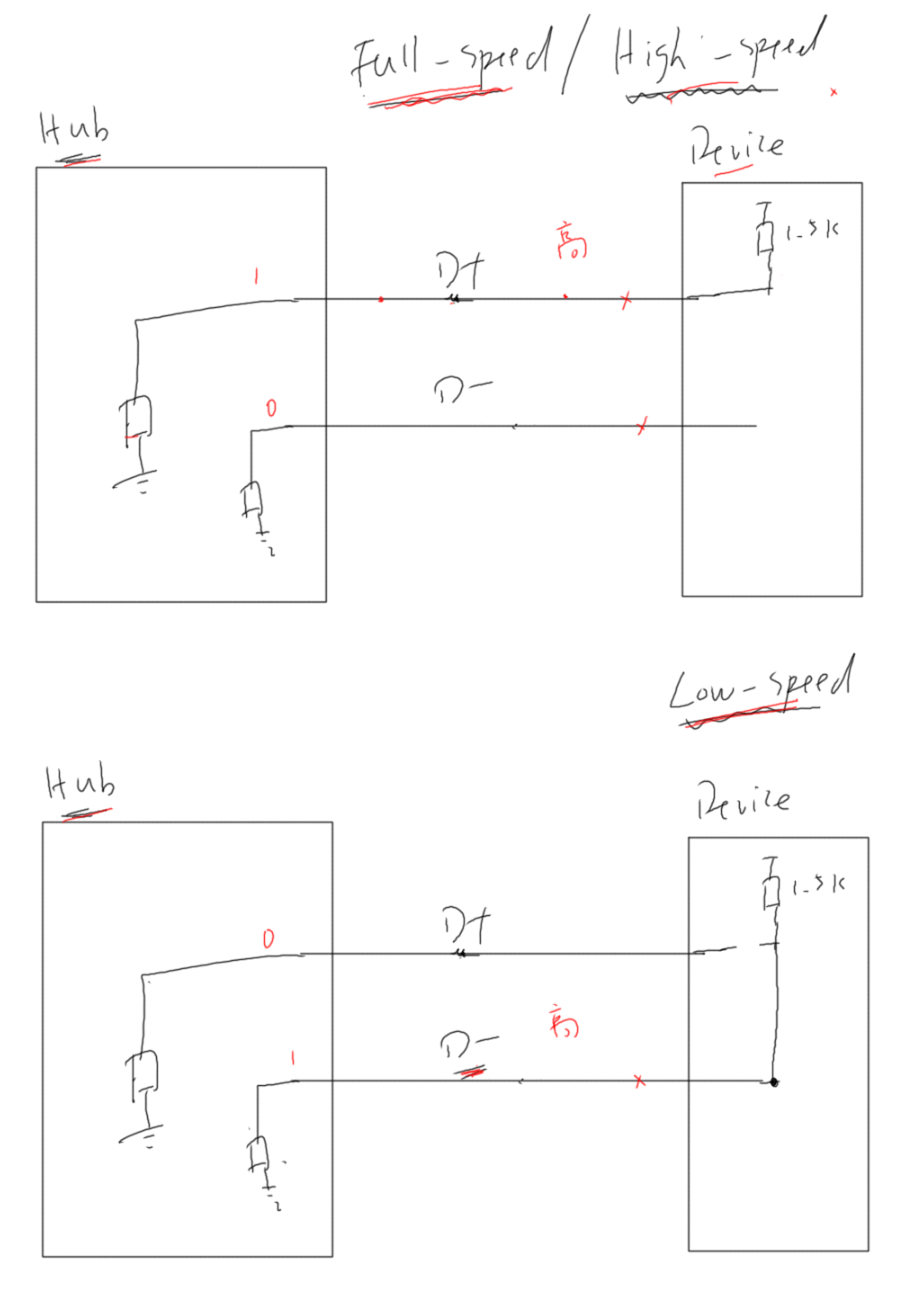 Full-speed / High-speed
Hub
Device
1.5K
1
D+
高
0
D-
Low-speed
Hub
Device
1.5K
0
D+
1
D-
高